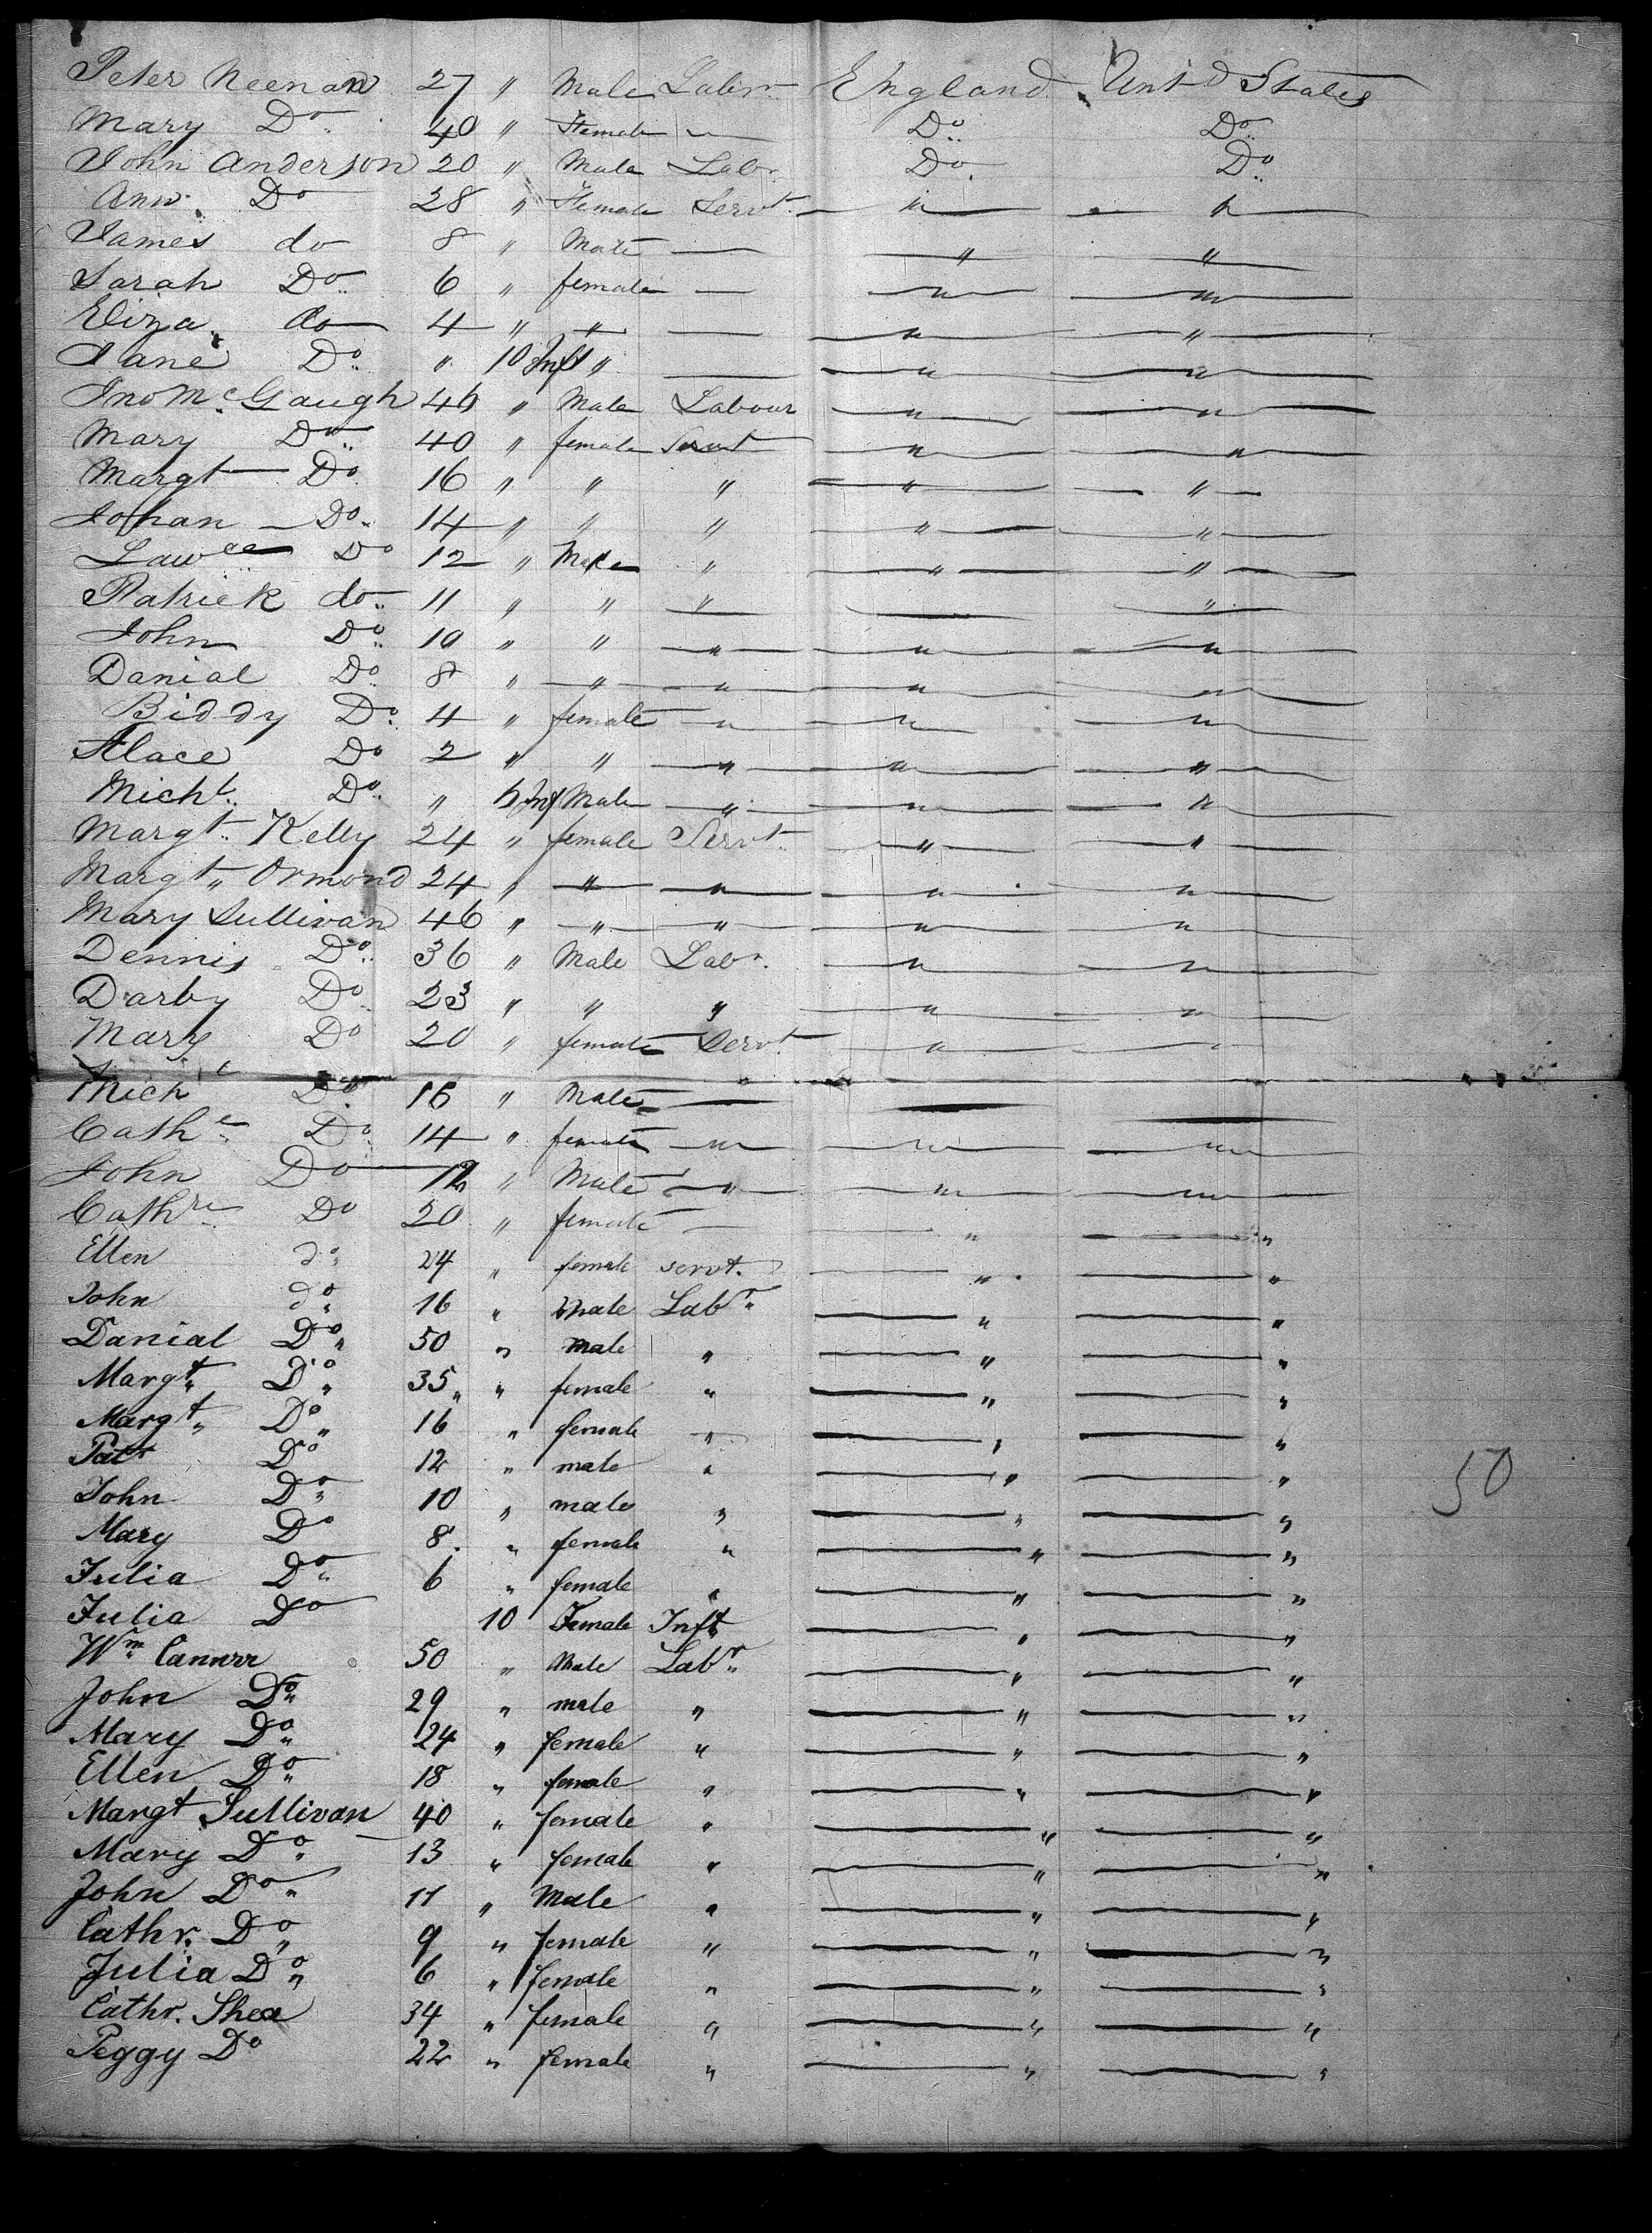 Peter Neenan 27 " Male Labr. England Unt d States
Mary Do 40 " Female — Do Do
John Anderson 20 " Male Labr. Do Do
Ann Do 28 " Female Servt. " "
James do 8 " Male — " "
Sarah Do 6 " female — " "
Eliza do 4 " " — " "
Jane Do " 10 Inft " — " "
Jno McGaugh 46 " Male Labour " "
Mary Do 40 " female Servt " "
Margt Do 16 " " " " "
Johan Do 14 " " " " "
Lawce Do 12 " Male " " "
Patrick do 11 " " " — "
John Do 10 " " " " "
Danial Do 8 " " " " "
Biddy Do 4 " female " " "
Alace Do 2 " " " " "
Michl Do " Inf Male " " "
Margt. Kelly 24 " female Servt. " "
Margt. Ormond 24 " " " " "
Mary Sullivan 46 " " " " "
Dennis Do 36 " Male Labr. " "
Darby Do 23 " " " " "
Mary Do 20 " female Servt. " "
Michl Do 16 " Male — — —
Cathe Do 14 " female " " "
John Do 12 " Male " " "
Cathre Do 20 " female — " "
Ellen do 24 " female servt. " "
John do 16 " Male Labr " "
Danial Do 50 " Male " " "
Margt Do 35 " female " " "
Margt Do 16 " female " " "
Patr Do 12 " male " " "
John Do 10 " male " " "
50
Mary Do 8 " female " " "
Julia Do 6 " female " " "
Julia Do 10 Female Inft " "
Wm Cannrr 50 " Male Labr " "
John Do 29 " male " " "
Mary Do 24 " female " " "
Ellen Do 18 " female " " "
Margt Sullivan 40 " female " " "
Mary Do 13 " female " " "
John Do 11 " Male " " "
Cathr. Do 9 " female " " "
Julia Do 6 " female " " "
Cathr. Shea 34 " female " " "
Peggy Do 22 " female " " "